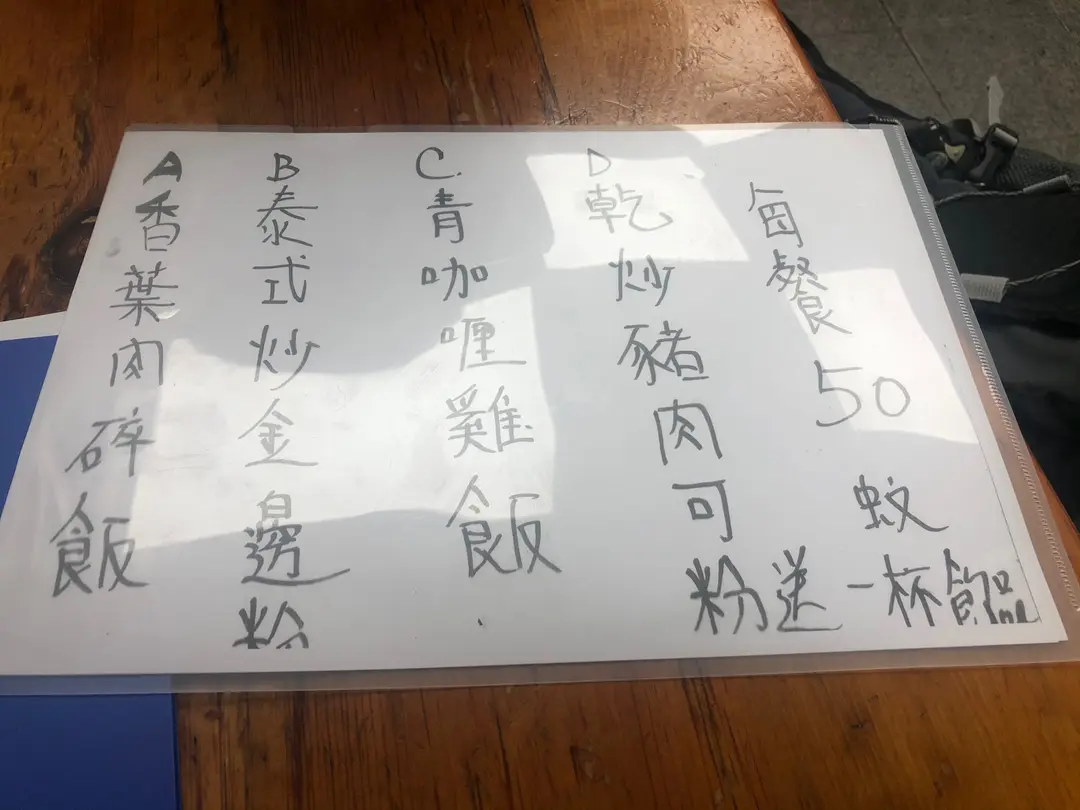 A香葉肉碎飯
B泰式炒金邊粉
C.青咖喱雞飯
D乾炒豬肉可粉
每餐50蚊
送一杯飲品